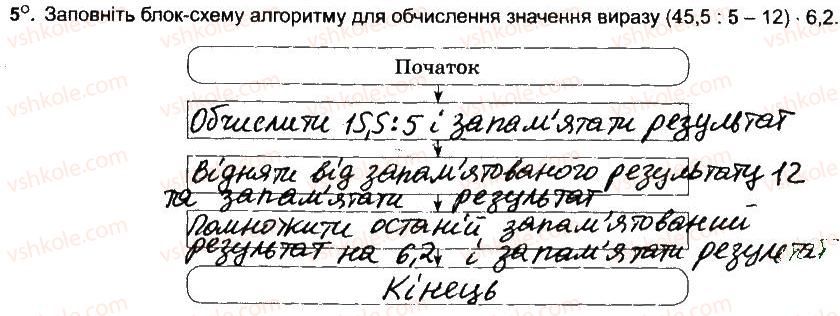 5°. Заповніть блок-схему алгоритму для обчислення значення виразу (45,5 : 5 – 12) · 6,2.
Початок
Обчислити 15,5:5 і запам'ятати результат
Відняти від запам'ятованого результату 12
та запам'ятати результат
Помножити останій запам'ятований
результат на 6,2 і запам'ятати результат
Кінець
vshkole.com